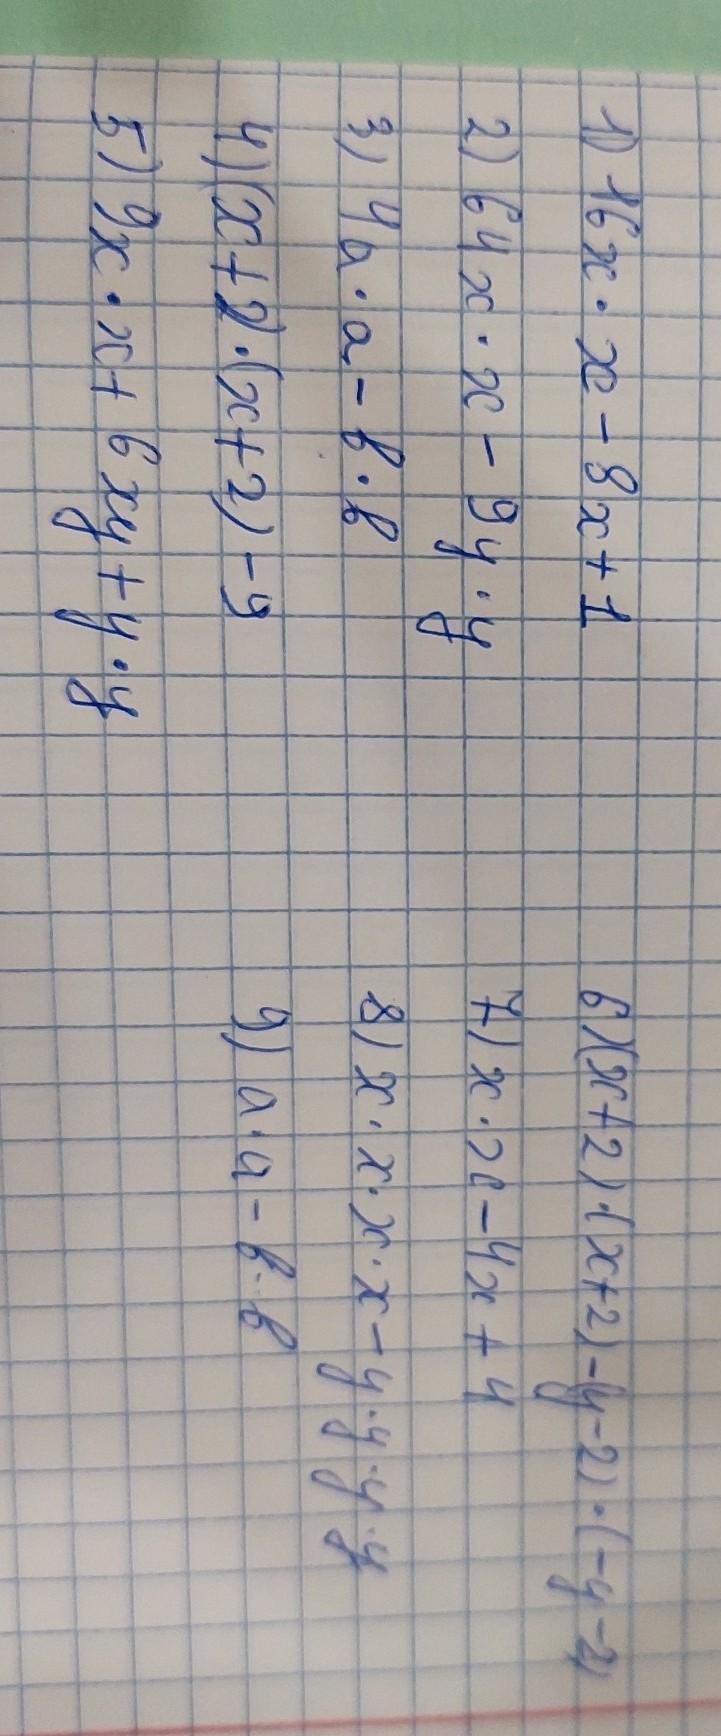 1) 16x·x-8x+1
2) 64x·x-9y·y
3) 4a·a-b·b
4) (x+2)·(x+2)-9
5) 9x·x+6xy+y·y
6) (x+2)·(x+2)-(y-2)·(-y-2)
7) x·x-4x+4
8) x·x·x·x-y·y·y·y
9) a·a-b·b